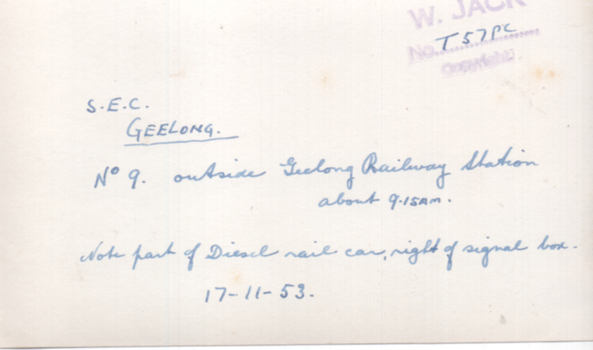 W. JACK
No. T57PC
Copyright.
S.E.C.
GEELONG.
No 9. outside Geelong Railway Station
about 9.15AM.
Note part of Diesel rail car, right of signal box.
17-11-53.